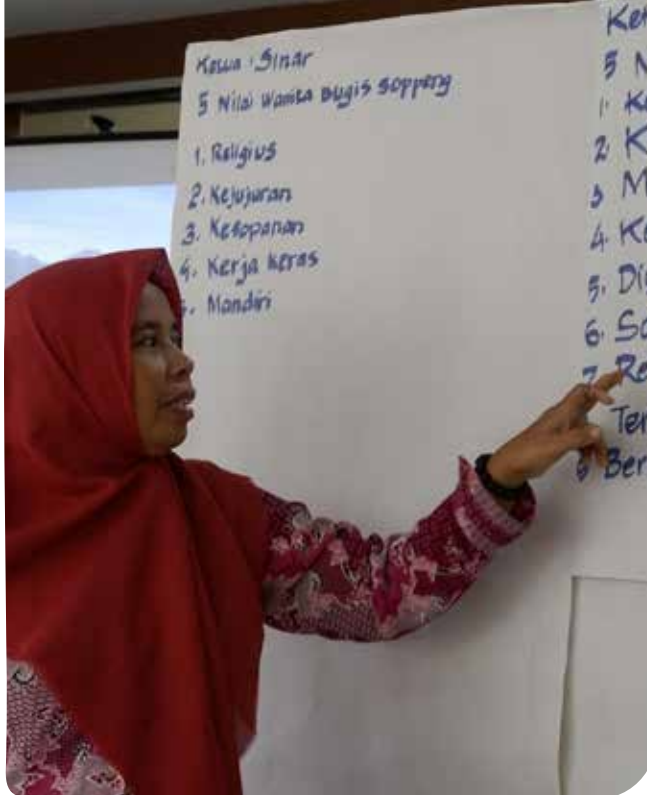 Ketua : Sinar
5 Nilai Wanita Bugis Soppeng
1. Religius
2. Kejujuran
3. Kesopanan
4. Kerja keras
5. Mandiri
Ket
5 N
1. Ke
2 K
3 M
4. Ke
5. Di
6. So
7 Re
Ter
Ber